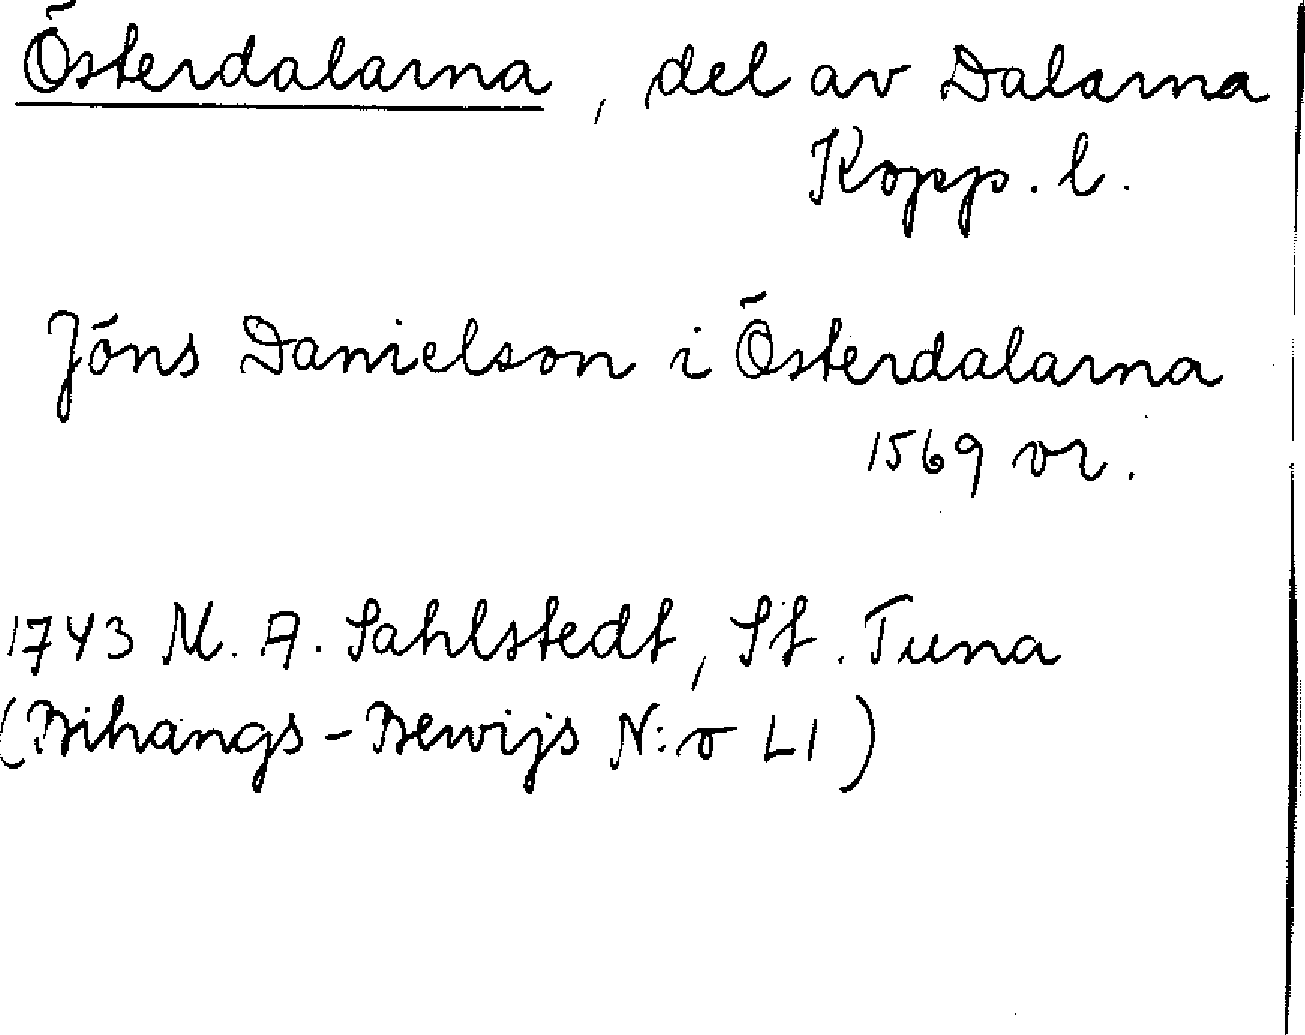 Österdalarna, del av Dalarna
Kopp. l.
Jöns Danielson i Österdalarna
1569 or.
1743 M. A. Sahlstedt, St. Tuna
(Bihangs-Bewijs N:o LI)